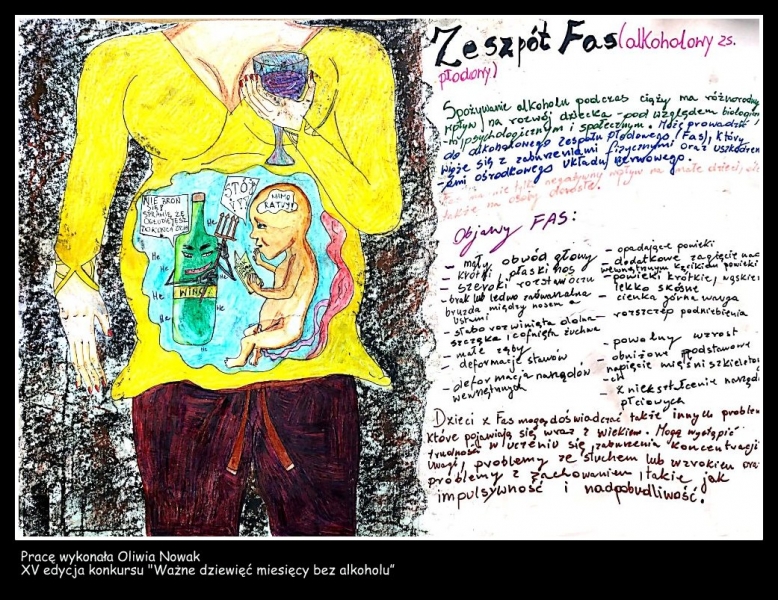 Zespół Fas (alkoholowy zs.
płodowy)
Spożywanie alkoholu podczas ciąży ma różnorodny
wpływ na rozwój dziecka - pod względem biologicz
- m, psychologicznym i społecznym. Może prowadzić
do alkoholowego zespołu płodowego (Fas), który
wiąże się z zaburzeniami fizycznymi oraz uszkodzen
- iami ośrodkowego układu nerwowego.
Fas ma nie tylko negatywny wpływ na małe dzieci,
także na osoby dorosłe.
Objawy FAS:
- mały obwód głowy
- krótki, płaski nos
- szeroki rozstaw oczu
- brak lub ledwo zauważalna
bruzda między nosem a
ustami
- słabo rozwinięta dolna
szczęka i cofnięta żuchwa
- małe zęby
- deformacje stawów
- deformacja narządów
wewnętrznych
- opadające powieki
- dodatkowe zagięcie nad
wewnętrznym kącikiem powieki
- powieki krótkie, wąskie
lekko skośne
- cienka górna warga
- rozszczep podniebienia
- powolny wzrost
- obniżone podstawowe
napięcie mięśni szkieletow
- ch
- zniekształcenie narządó
płciowych
Dzieci z Fas mogą doświadczać także innych problem
które pojawiają się wraz z wiekiem. Mogą wystąpić
trudności w uczeniu się, zaburzenia koncentracji
uwagi, problemy ze słuchem lub wzrokiem oraz
problemy z zachowaniem, takie jak
impulsywność i nadpobudliwość.
NIE BROŃ
SIĘ!
ZGŁUPIEJESZ
DO KOŃCA
STÓJ
MAMO
RATUJ!
He
He
He
He
He
He
He
WINO
Pracę wykonała Oliwia Nowak
XV edycja konkursu "Ważne dziewięć miesięcy bez alkoholu"